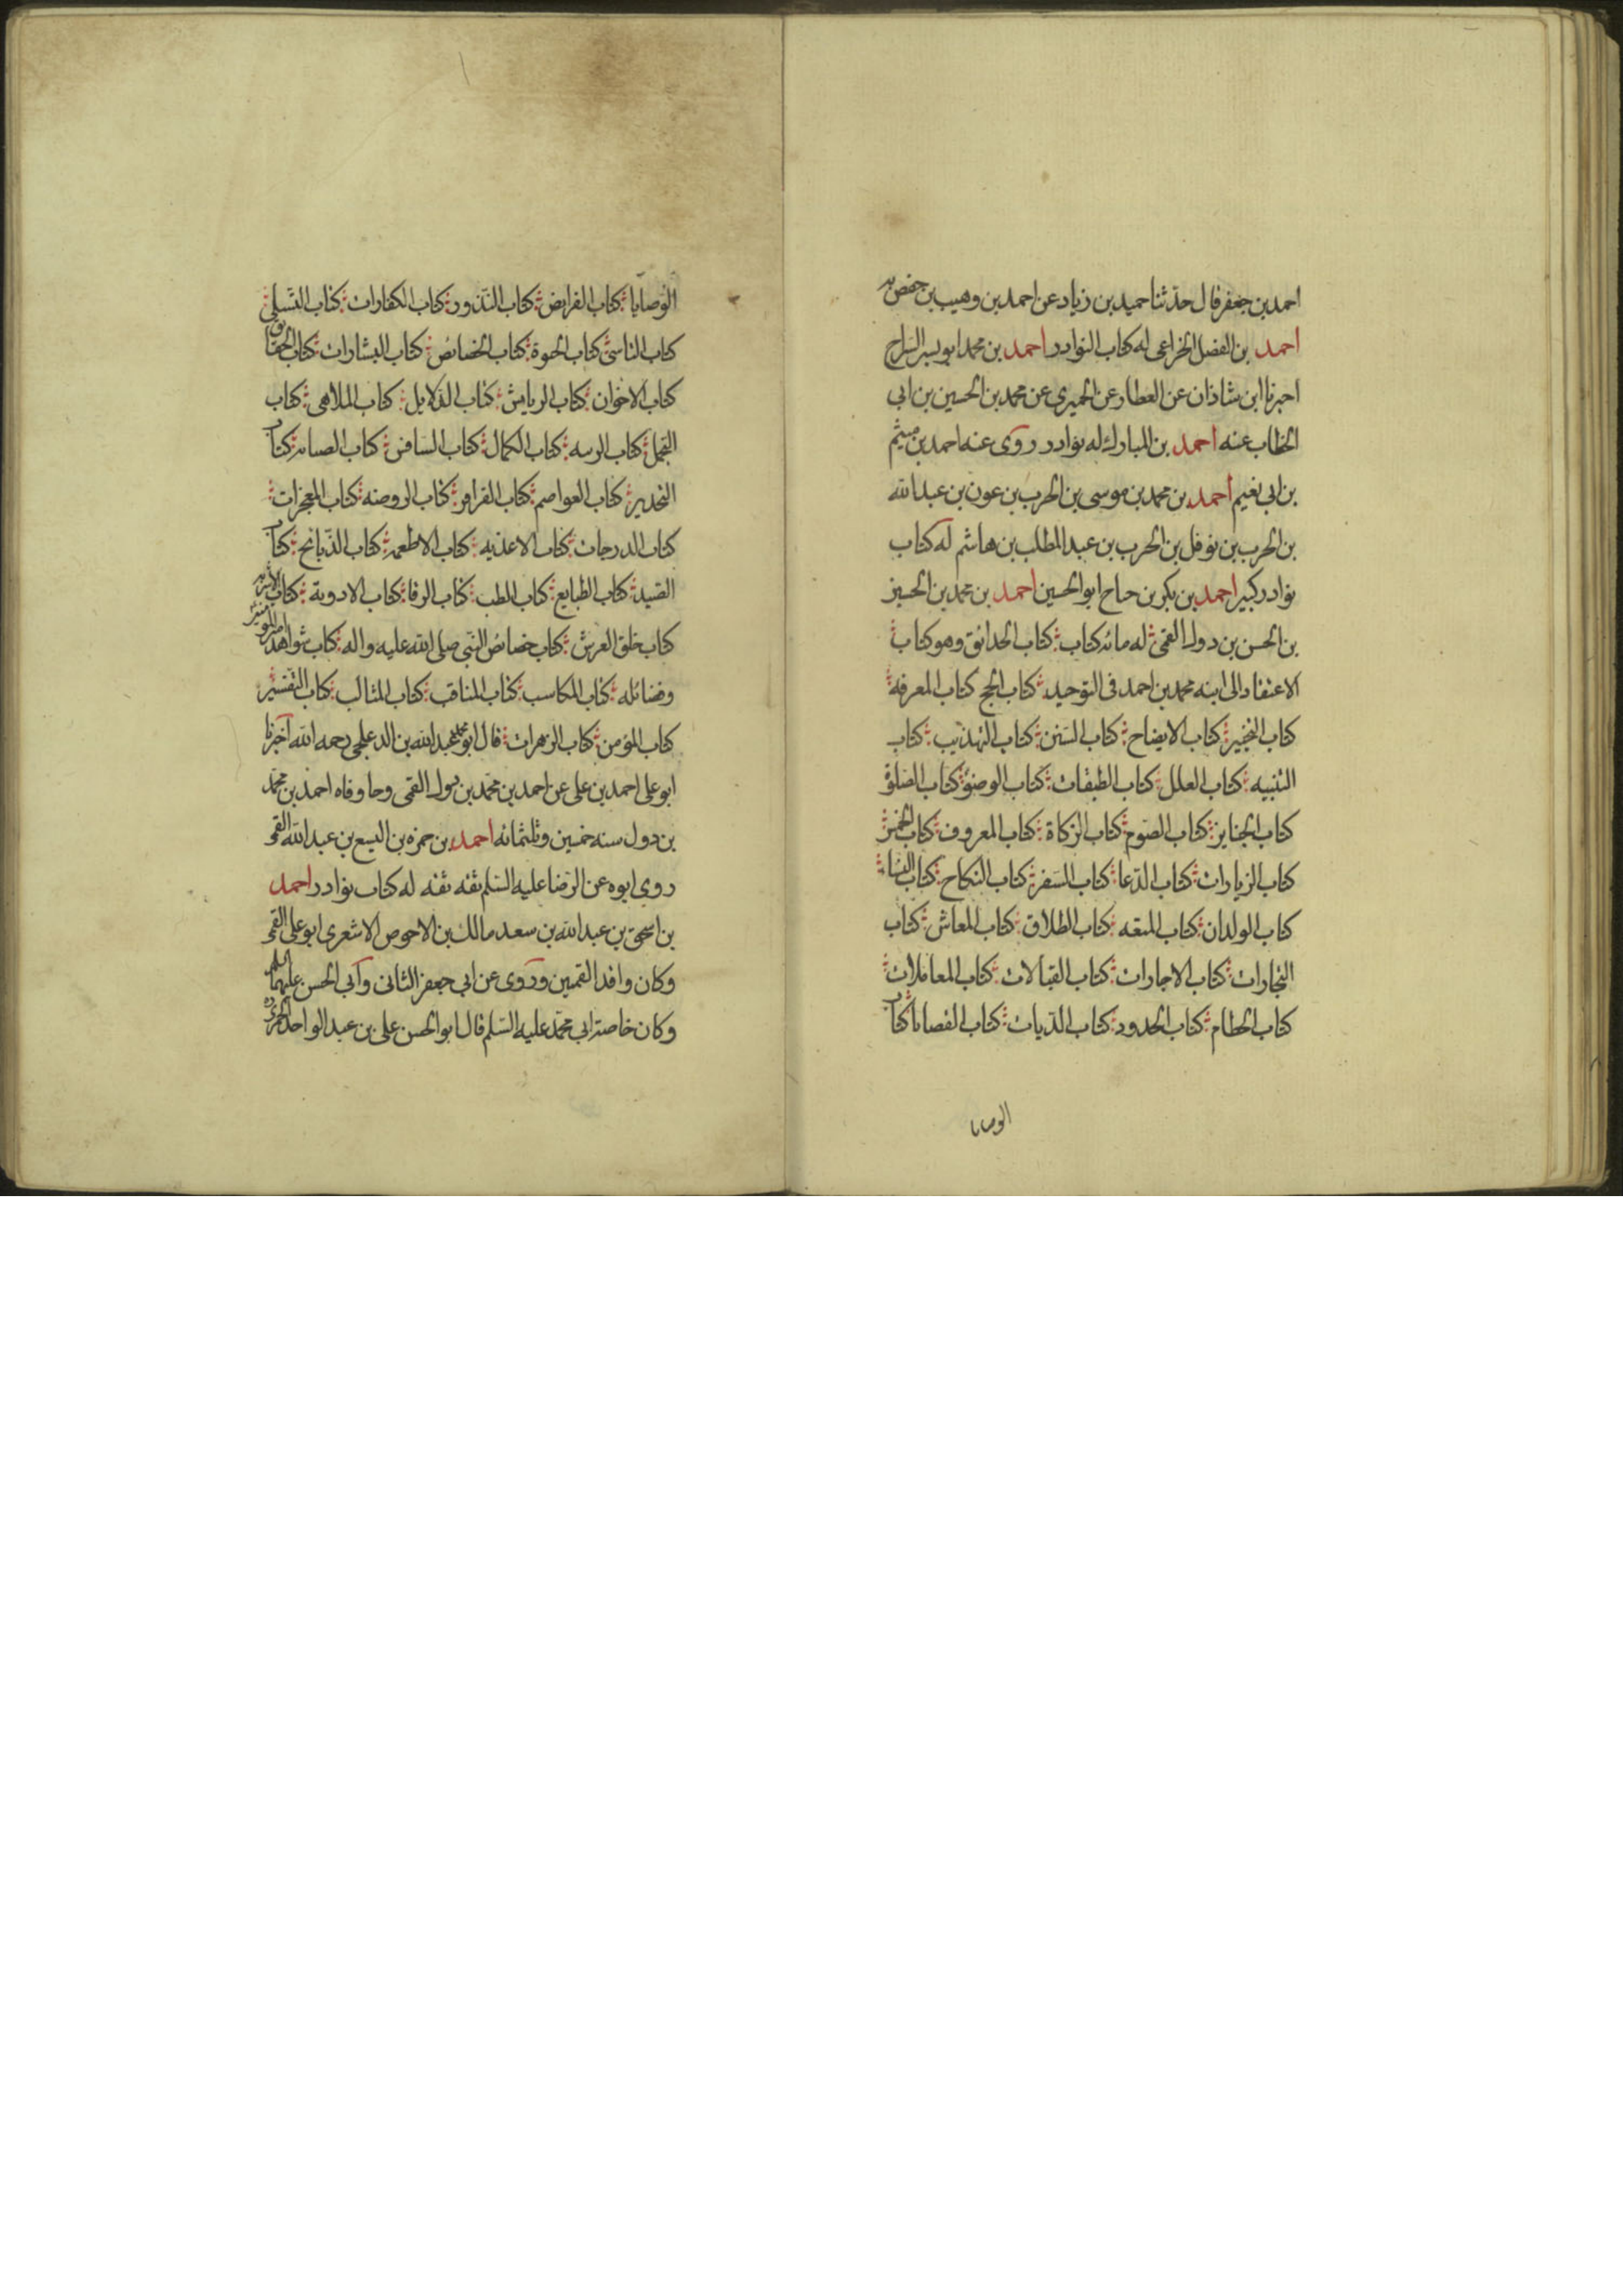 احمد بن جعفر قال حدثنا حميد بن زياد عن احمد بن وهيب بن حفص به
احمد بن الفضل الخزاعى له كتاب النوادر احمد بن محمد ابو بسر السراج
اخبرنا ابن شاذان عن العطار عن الحميرى عن محمد بن الحسين بن ابى
الخطاب عنه احمد بن المبارك له نوادر روى عنه احمد بن ميثم
بن ابى نعيم احمد بن محمد بن موسى بن الحرب بن عون بن عبد الله
بن الحرب بن نوفل بن الحرب بن عبد المطلب بن هاشم له كتاب
نوادر كبير احمد بن بكر بن جناح ابو الحسين احمد بن محمد بن الحسين
بن الحسن بن دول القمى له مائه كتاب كتاب الحدائق وهو كتاب
الاعتقاد الى ابنه محمد بن احمد فى التوحيد كتاب الحج كتاب المعرفة
كتاب التخيير كتاب الايضاح كتاب السنن كتاب التهذيب كتاب
التنبيه كتاب العلل كتاب الطبقات كتاب الوضؤ كتاب الصلوة
كتاب الجنايز كتاب الصوم كتاب الزكاة كتاب المعروف كتاب الخمس
كتاب الزيارات كتاب الدعا كتاب السفر كتاب النكاح كتاب النساء
كتاب الولدان كتاب المتعه كتاب الطلاق كتاب المعاش كتاب
التجارات كتاب الاجارات كتاب القبالات كتاب المعاملات
كتاب الحطام كتاب الحدود كتاب الديات كتاب القصايا كتاب
الوصايا
الوصايا كتاب الفرايض كتاب النذور كتاب الكفارات كتاب التسلى
كتاب التاسى كتاب الحيوة كتاب الخصائص كتاب البشارات كتاب الحقايق
كتاب الاخوان كتاب الرياش كتاب الدلايل كتاب الملاهى كتاب
التجمل كتاب الرسه كتاب الكمال كتاب السافر كتاب الصيانه كتاب
التحذير كتاب العواصم كتاب القراقر كتاب الروضه كتاب المعجزات
كتاب الدرجات كتاب الاغذيه كتاب الاطعمه كتاب الذبائح كتاب
الصيد كتاب الطبايع كتاب الطب كتاب الرقا كتاب الادوية كتاب الاشربه
كتاب خلق العرش كتاب خصائص النبى صلى الله عليه واله كتاب شواهد امير المؤمنين
وفضائله كتاب المكاسب كتاب المناقب كتاب المثالب كتاب التفسير
كتاب المؤمن كتاب الزهرات قال ابو محمد عبد الله بن الدعلجى رحمه الله اخبرنا
ابو على احمد بن على عن احمد بن محمد بن دول القمى وجا وفاه احمد بن محمد
بن دول سنه خمسين وثلثمائه احمد بن حمزه بن اليسع بن عبد الله القمى
روى ابوه عن الرضا عليه السلم ثقه ثقه له كتاب نوادر احمد
بن اسحق بن عبد الله بن سعد مالك بن الاحوص الاشعرى ابو على القمى
وكان وافد القميين وروى عن ابى جعفر الثانى وابى الحسن عليهما السلم
وكان خاصة ابى محمد عليه السلم قال ابو الحسن على بن عبد الواحد الخمرى ره